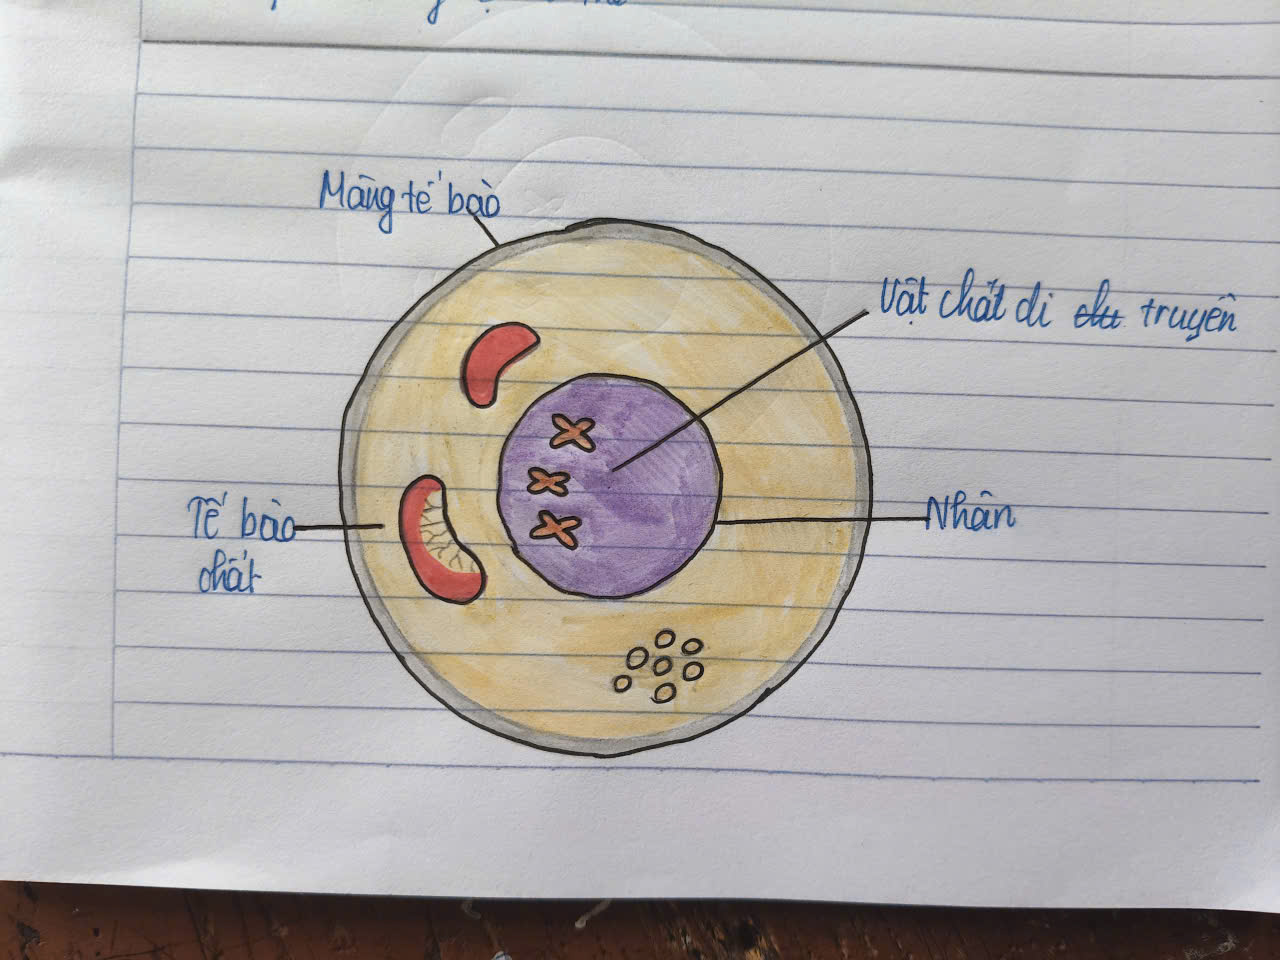 Màng tế bào
Vật chất di truyền
Tế bào
chất
Nhân